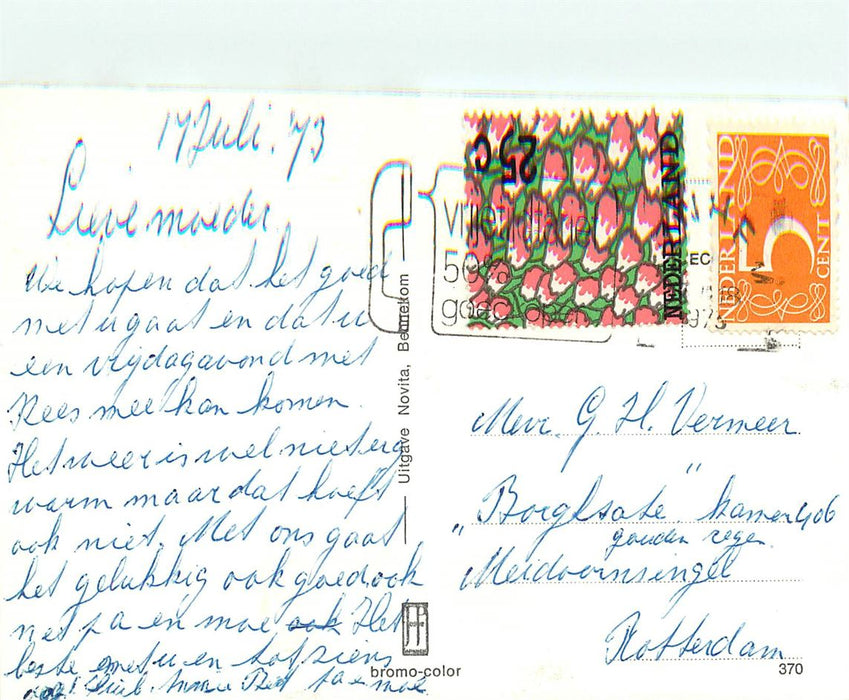 17 Juli. '73
Lieve moeder
We hopen dat het goed
met u gaat en dat u
een vrijdagavond met
Kees mee kan komen.
Het weer is wel niet erg
warm maar dat hoeft
ook niet. Met ons gaat
het gelukkig ook goed ook
met pa en moe ook Het
beste met u en tot ziens
pa e moe
Uitgave Novita, Bennekom
bromo-color
25 c
NEDERLAND
NEDERLAND
5
CENT
50%
goed
1973
Mevr. G. H. Vermeer
„Borgksate" kamer 406
gouden regen
Meidoornsingel
Rotterdam
370